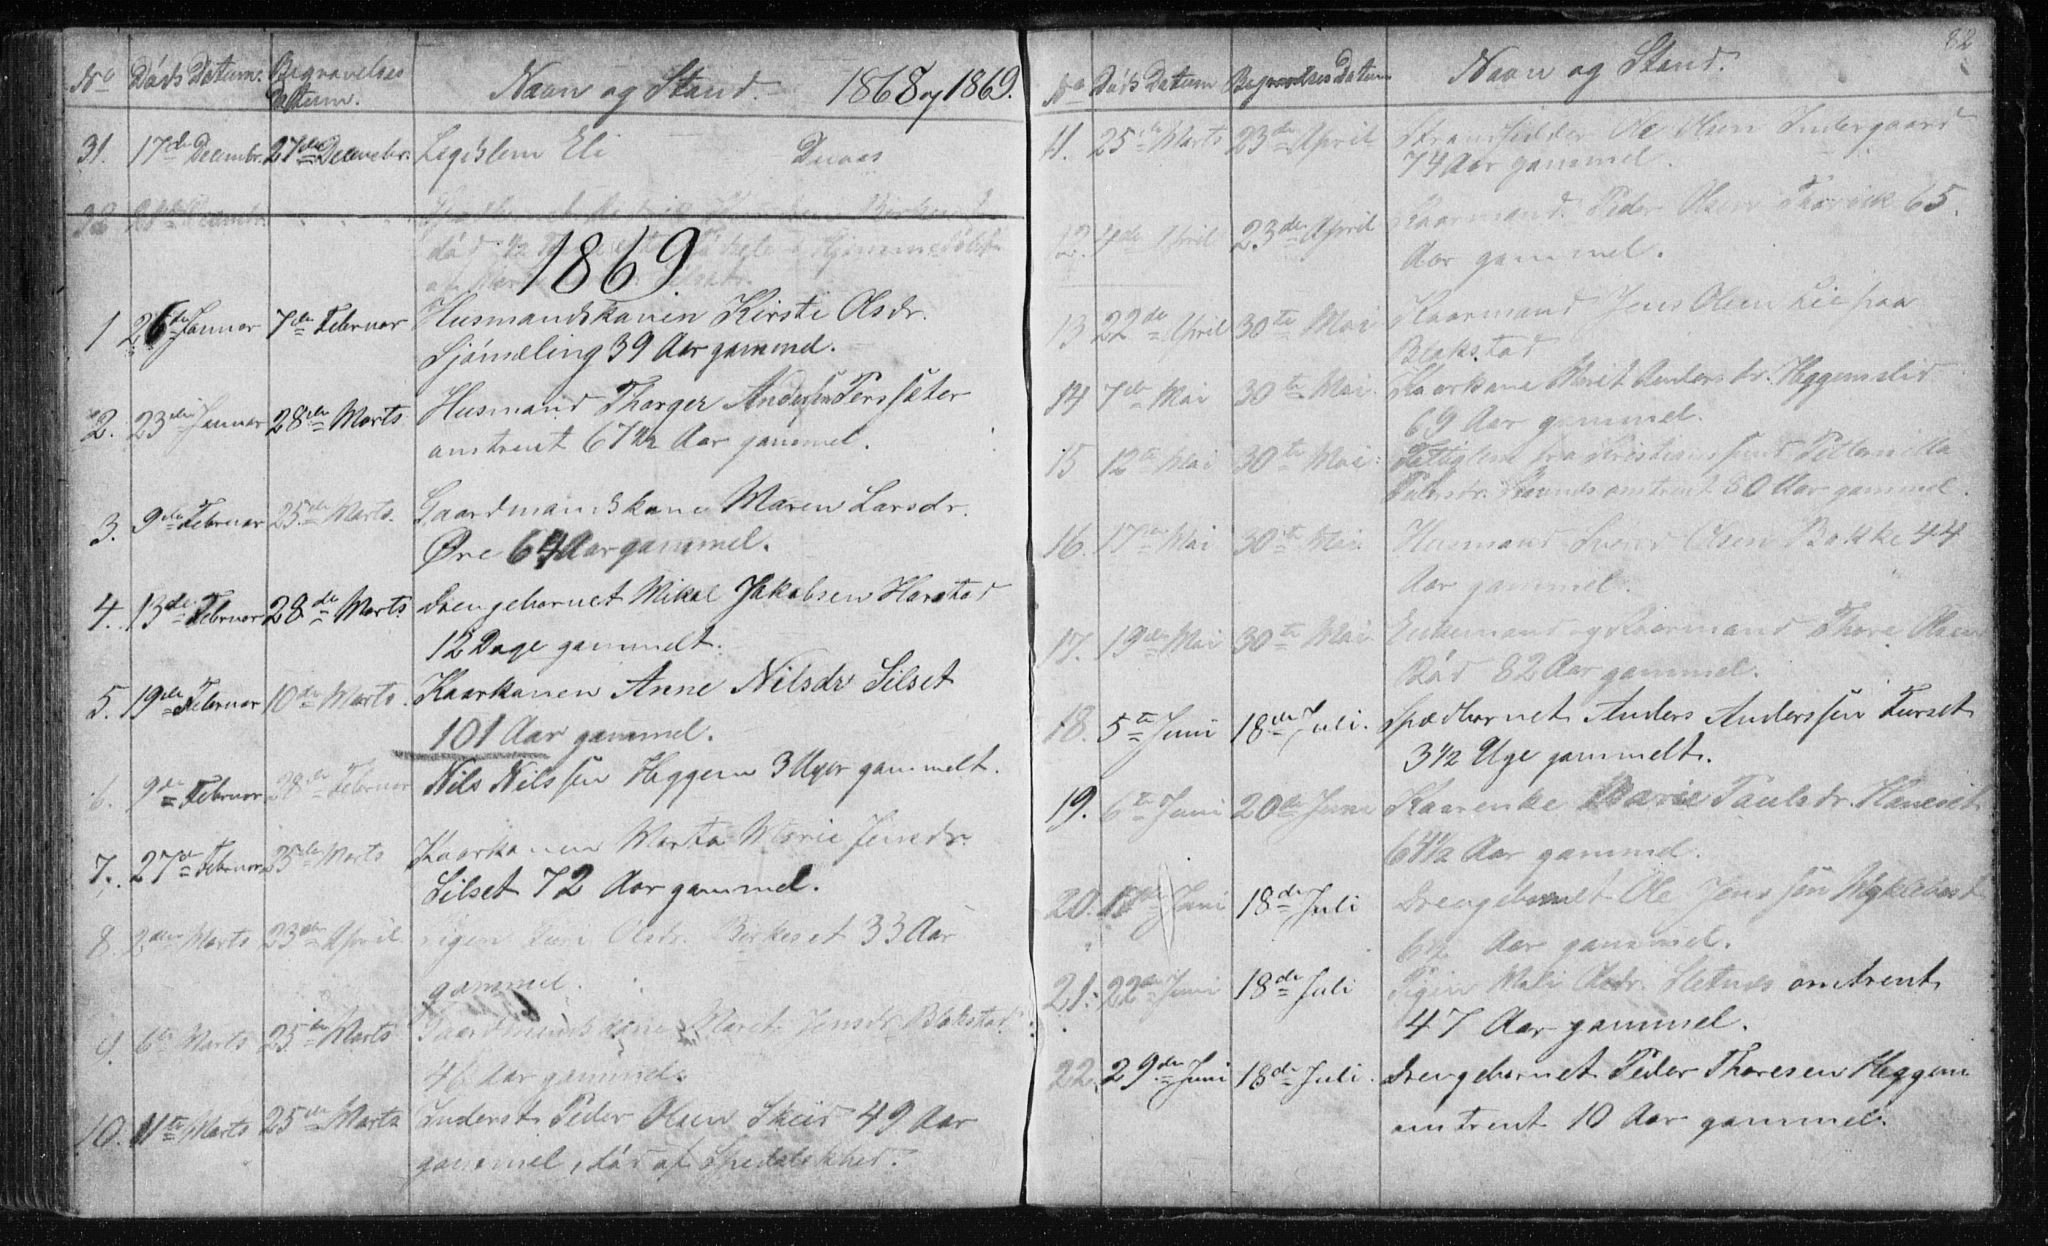 No Døds Datum. Begravelses Datum. Navn og Stand. 1868 og 1869.
31. 17de Decembr. 27de Decembr. Legdslem Eli Duaas
32 Decembr.
1869.
1 26de Januar 7de Februar Husmandskonen Kirsti Olsdr.
Sjømæling 39 Aar gammel.
2. 23de Januar 28de Marts Husmand Thorger Anderssen Perssæter
omtrent 67 1/2 Aar gammel.
3. 9de Februar 25de Marts. Gaardmandskone Maren Larsdr.
Øre 64 Aar gammel.
4. 13de Februar 28de Marts Drengebarnet Mikal Jakobsen Harstad
12 Dage gammelt.
5. 19de Februar 10de Marts. Kaarkonen Anne Nilsdr Silset
101 Aar gammel.
6. 9de Februar 28de Februar Nils Nilssen Heggem 3 Uger gammelt.
7. 27de Februar 25de Marts Kaarkonen Marta Marie Jensdr.
Silset 72 Aar gammel.
8. 2den Marts 23de April Pigen Guri Olsdr. Birkeset 33 Aar
gammel.
9. 6te Marts 25de Marts Gaardmandskone Maret Jensdr Blakstad
46 Aar gammel.
10. 11te Marts 25de Marts Inderst Peder Olsen Skeid 49 Aar
gammel, død af Spedalskhed.
82
No Døds Datum Begravelses Datum Navn og Stand.
11. 25de Marts 23de April Strandsidder Ole Olsen Indergaard
74 Aar gammel.
12. 4de April 23de April Kaarmand Peder Olsen Thorvik 65
Aar gammel.
13 22de April 30te Mai Kaarmand Jens Olsen Lie paa
Blakstad
14 7de Mai 30te Mai. Kaarkone Marit Andersdr. Heggemslid
69 Aar gammel.
15 12te Mai 30te Mai. Fattiglem fra Kristianssund Petternilla
Pedersdr. omtrent 80 Aar gammel.
16. 17de Mai 30te Mai. Husmand Sivert Olsen Bakke 44
Aar gammel.
17. 19de Mai 30te Mai. Enkemand og Kaarmand Thore Olsen
Rød 82 Aar gammel.
18. 5te Juni 18de Juli. Spædbarnet Anders Anderssen Furset
3 1/2 Uge gammelt.
19. 6te Juni 20de Juni Kaarenke Marie Paulsdr. Haneset
64 1/2 Aar gammel.
20. 17de Juni 18de Juli Drengebarnet Ole Jenssen Myklebost
Aar gammel.
21. 22de Juni 18de Juli Pigen Mali Olsdr. Sletnes omtrent
47 Aar gammel.
22. 29de Juni 18de Juli. Drengebarnet Peder Thoresen Heggem
omtrent 10 Aar gammel.